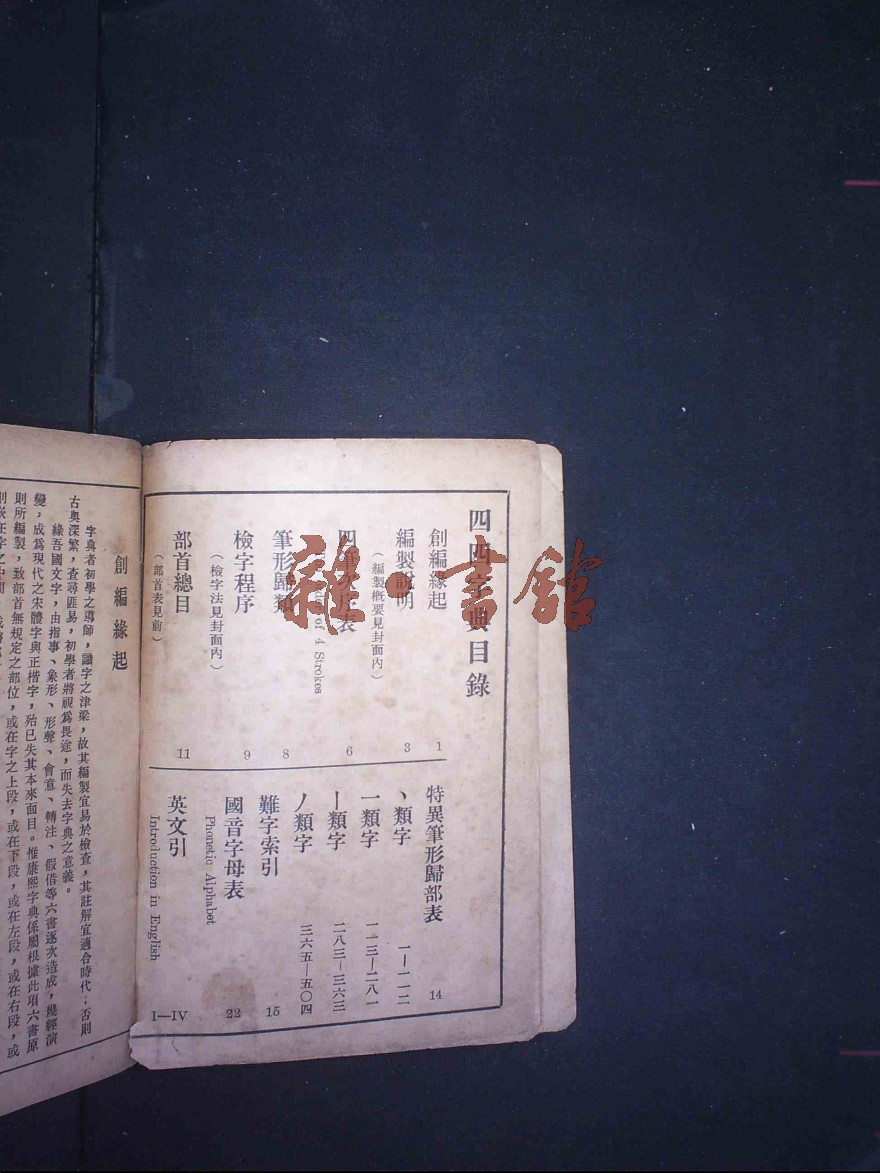 四西字典目錄
創編緣起 1
編製說明 3
（編製概要見封面內）
四筆次序表 6
of 4 Strokes
筆形歸類 8
檢字程序 9
（檢字法見封面內）
部首總目 11
（部首表見前）
特異筆形歸部表 14
丶類字 一—一一二
一類字 一一三—二八一
丨類字 二八三—三六三
丿類字 三六五—五〇四
難字索引 15
國音字母表 22
Phonetic Alphabet
英文引 I—IV
Introduction in English
雜·書館
創編緣起
字典者初學之導師，識字之津梁，故其編製宜易於檢查，其註解宜適合時代；否則
古奧深繁，查尋匪易，初學者將視爲畏途，而失去字典之意義。
緣吾國文字，由指事、象形、形聲、會意、轉注、假借等六書逐次造成，幾經演
變，成爲現代之宋體字與正楷字，殆已失其本來面目。惟康熙字典係屬根據此項六書原
則所編製，致部首無規定之部位，或在字之上段，或在下段，或在左段，或在右段，或